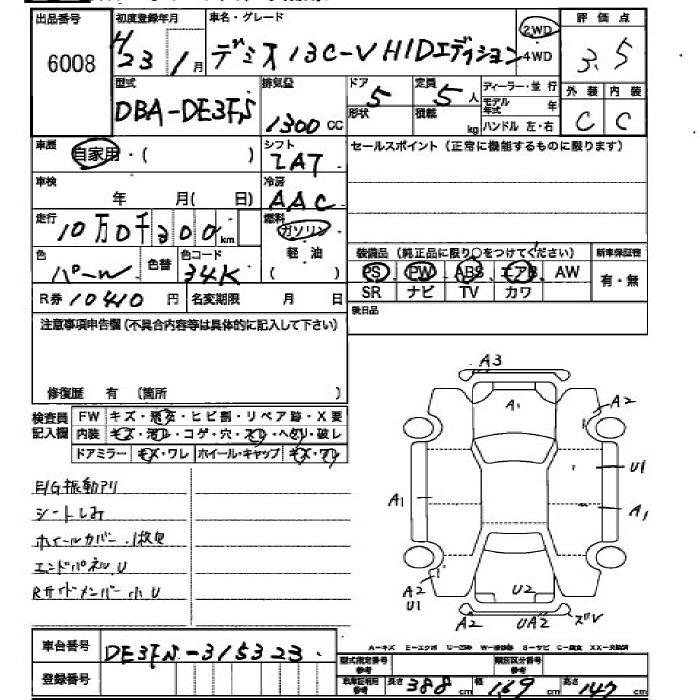 出品番号 初度登録年月 車名・グレード 評価点
6008 H23年1月 デミオ 13C-V HIDエディション 2WD 4WD 3.5
型式 排気量 ドア 定員 ディーラー・並行 外装 内装
DBA-DE3FS 1300 cc 5 5人 モデル年式 年 C C
形状 積載 kg ハンドル 左・右
車歴 自家用・( ) シフト セールスポイント (正常に機能するものに限ります)
車検 年 月( 日) 冷房 AAC
走行 10万0千300km 燃料 ガソリン
軽油
( )
色 パール 色替 色コード 34K
装備品 (純正品に限り○をつけてください) 新車保証書
PS PW ABS エアB AW 有・無
SR ナビ TV カワ
R券 10410円 名変期限 月 日
後日品
注意事項申告欄 (不具合内容等は具体的に記入して下さい)
修復歴 有 (箇所 )
検査員記入欄 FW キズ・飛石・ヒビ割・リペア跡・X要
内装 キズ・汚レ・コゲ・穴・スレ・ヘタリ・破レ
ドアミラー キズ・ワレ ホイール・キャップ キズ・ワレ
E/G振動アリ
シートしみ
ホイールカバー 1枚欠
エンドパネルU
Rサイドメンバー小U
A3
A1
A2
U1
A1
A1
A2
U1
U2
A2
UA2
ズレ
A-キズ E-エクボ U-凹み W-補修跡 S-サビ C-腐食 XX-交換済
車台番号 DE3FS-315323
登録番号
型式指定番号 参考 類別区分番号 参考
車庫証明用 参考 長さ 388cm 幅 169cm 高さ 147cm